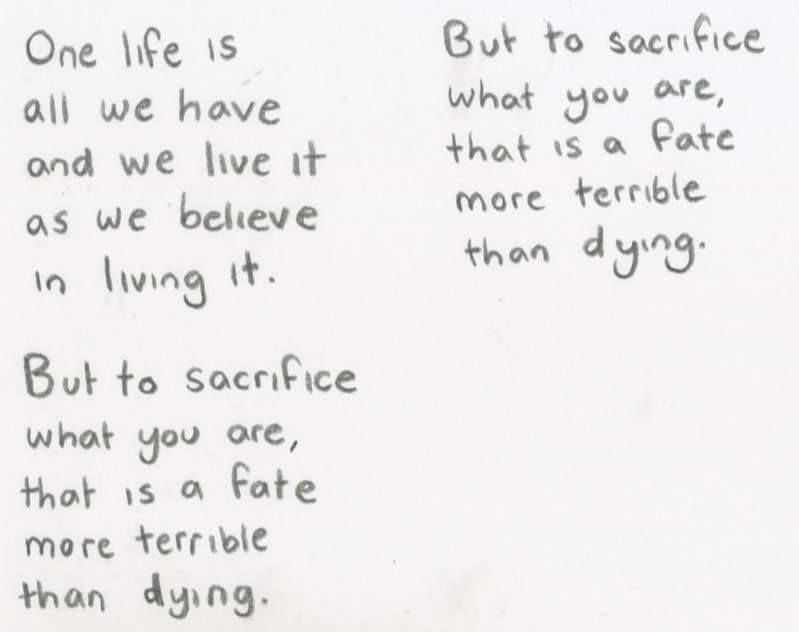 One life is
all we have
and we live it
as we believe
in living it.
But to sacrifice
what you are,
that is a fate
more terrible
than dying.
But to sacrifice
what you are,
that is a fate
more terrible
than dying.